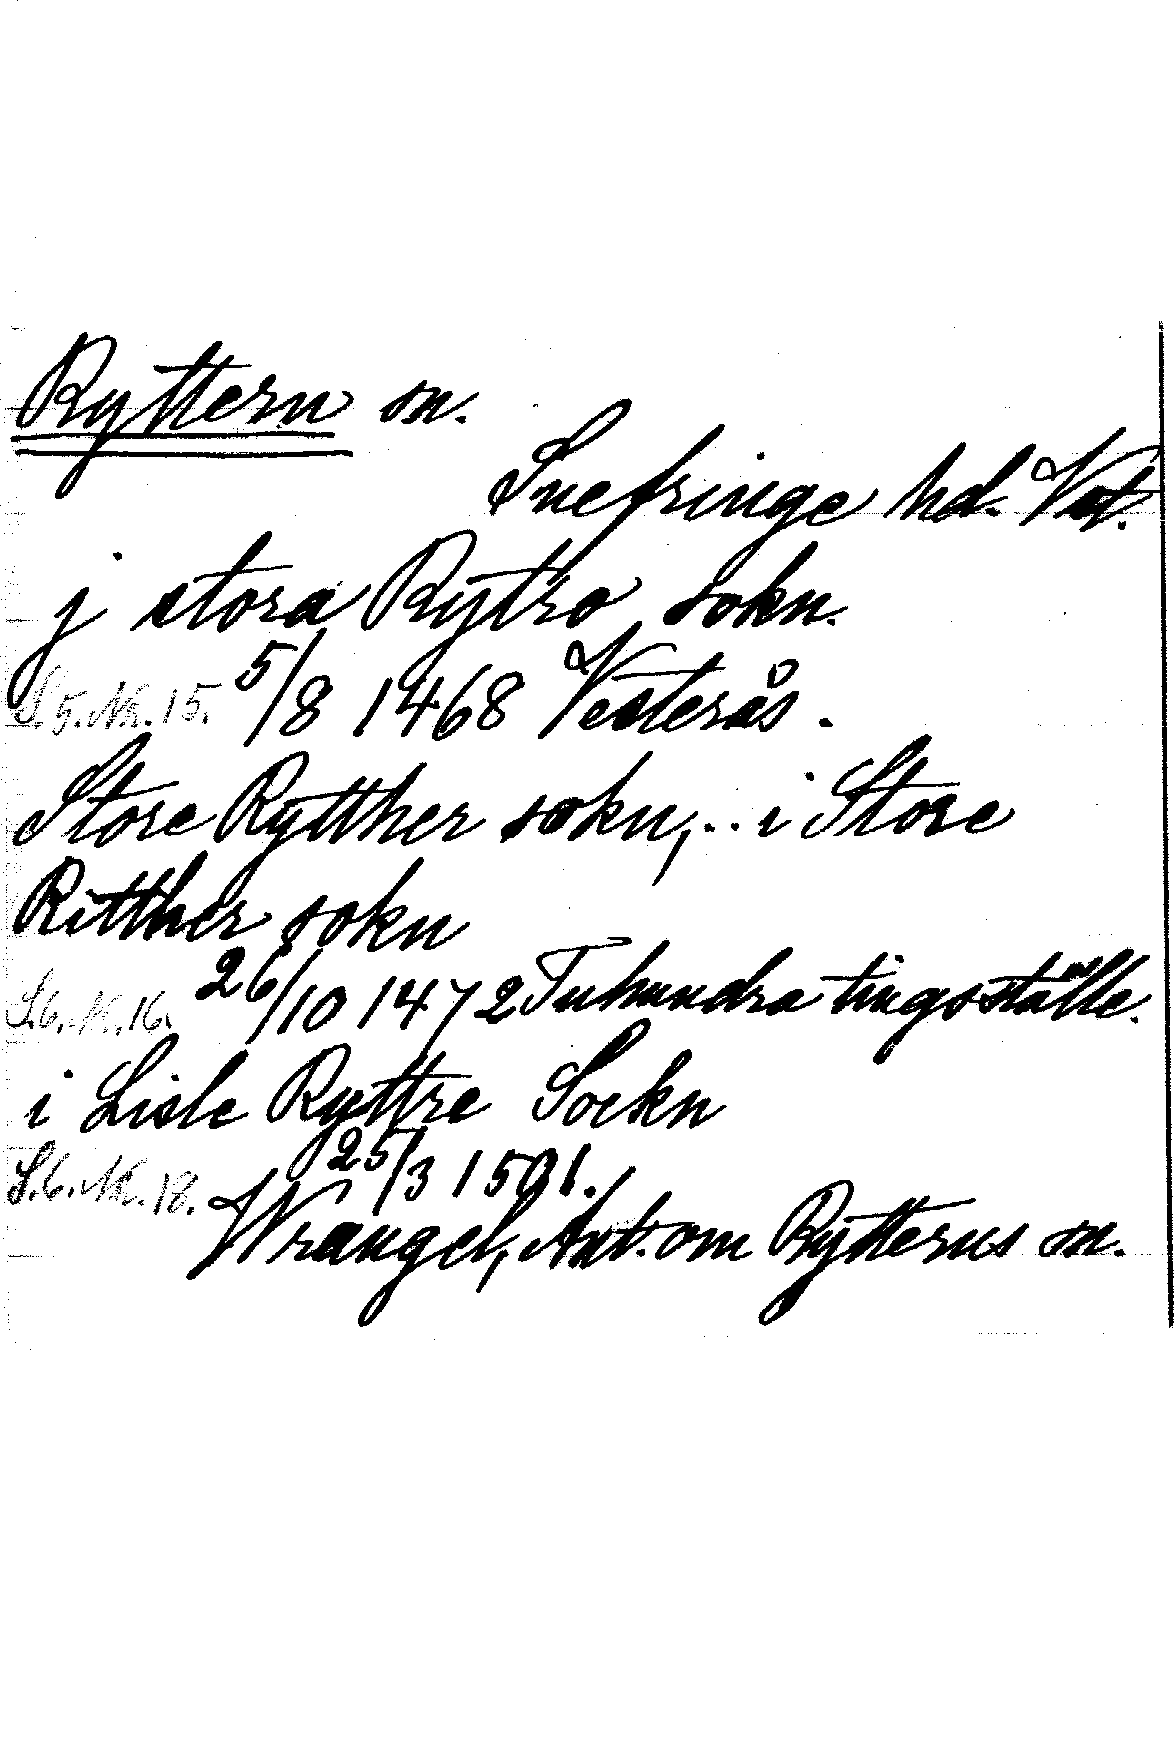 Ryttern sn.
Snefringe hd. Vstm.
j stora Rytro sokn.
S.5. Nr. 15. 5/8 1468 Vesterås.
Store Rytther sokn,.. i Store
Ritther sokn
S.6. Nr. 16. 26/10 1472 Tuhundra tingsställe.
i Lisle Ryttre Sockn
S.6. Nr. 18. 25/3 1501.
Wrangel, Ant. om Rytterns sn.